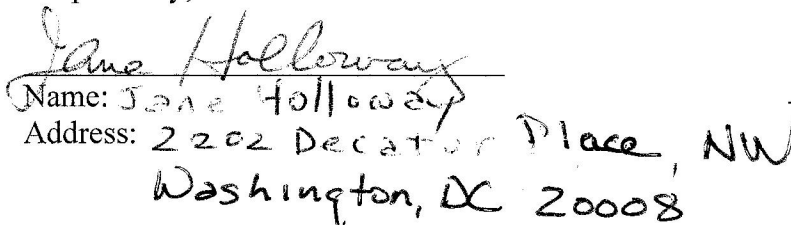 Jane Holloway
Name: Jane Holloway
Address: 2202 Decatur Place, NW
Washington, DC 20008